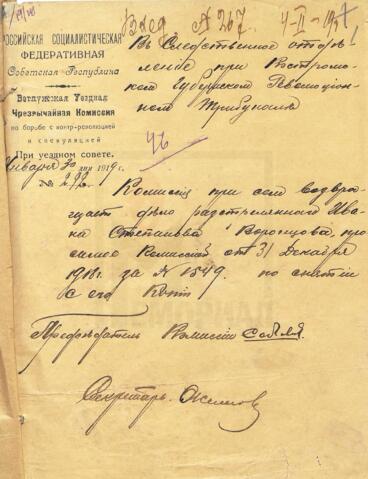 Вход № 267 4-II-19
РОССИЙСКАЯ СОЦИАЛИСТИЧЕСКАЯ
ФЕДЕРАТИВНАЯ
Советская Республика
Ветлужская Уездная
Чрезвычайная Комиссия
по борьбе с контр-революцией
и спекуляцией
При уездном совете.
Января 30 дня 1919 г.
В Следственное отде-
ление при Костром-
ском Губернском Революцион-
ном Трибунале
46
Комиссия при сем возвра-
щает дело расстрелянного Ива-
на Степанова Воронцова, про
симое Комиссией от 31 Декабря
1918 г. за № 1549. по снятии
с его Копии
Председатель Комиссии
Секретарь